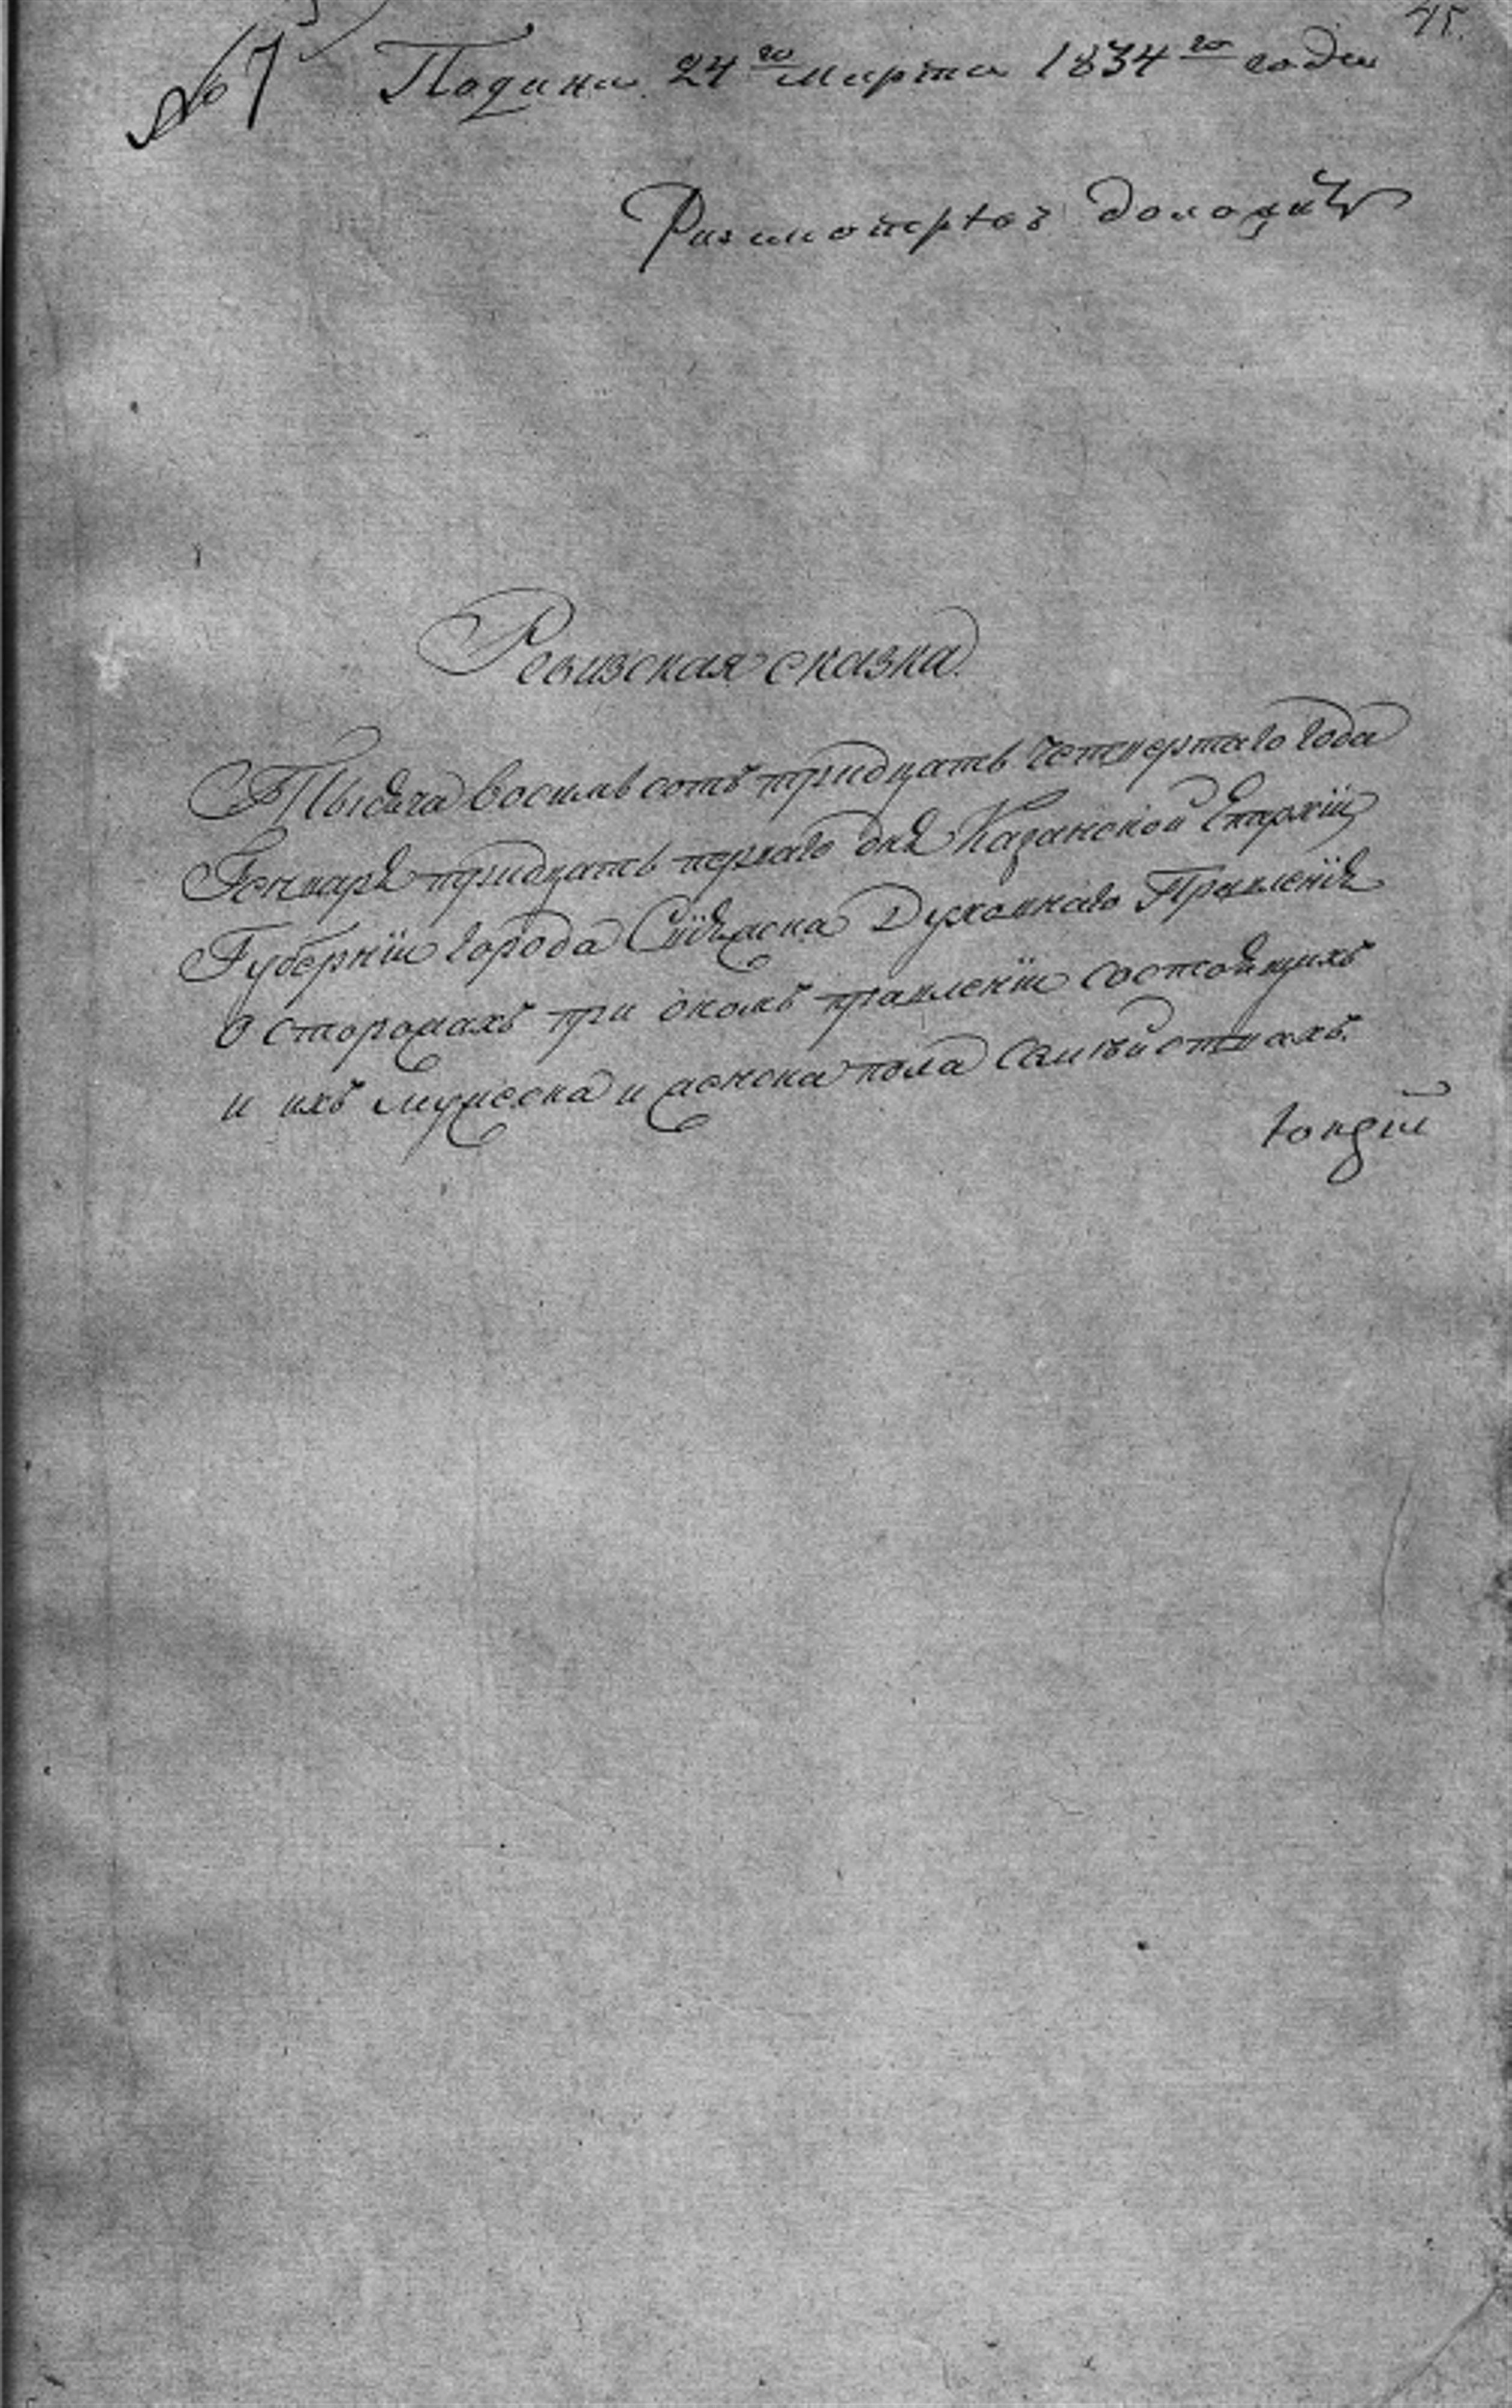 № 7 Подана 24го марта 1834го года
Разсмотревъ доложить
Ревизская сказка
Тысяча восемь сотъ тридцать четвертаго года
Генваря тридцать перваго дня Казанской Епархіи
Губерніи города Свіяжска Духовнаго Правленія
О сторожахъ при ономъ правленіи состоящихъ
и ихъ мужеска и женска пола семѣйствахъ.